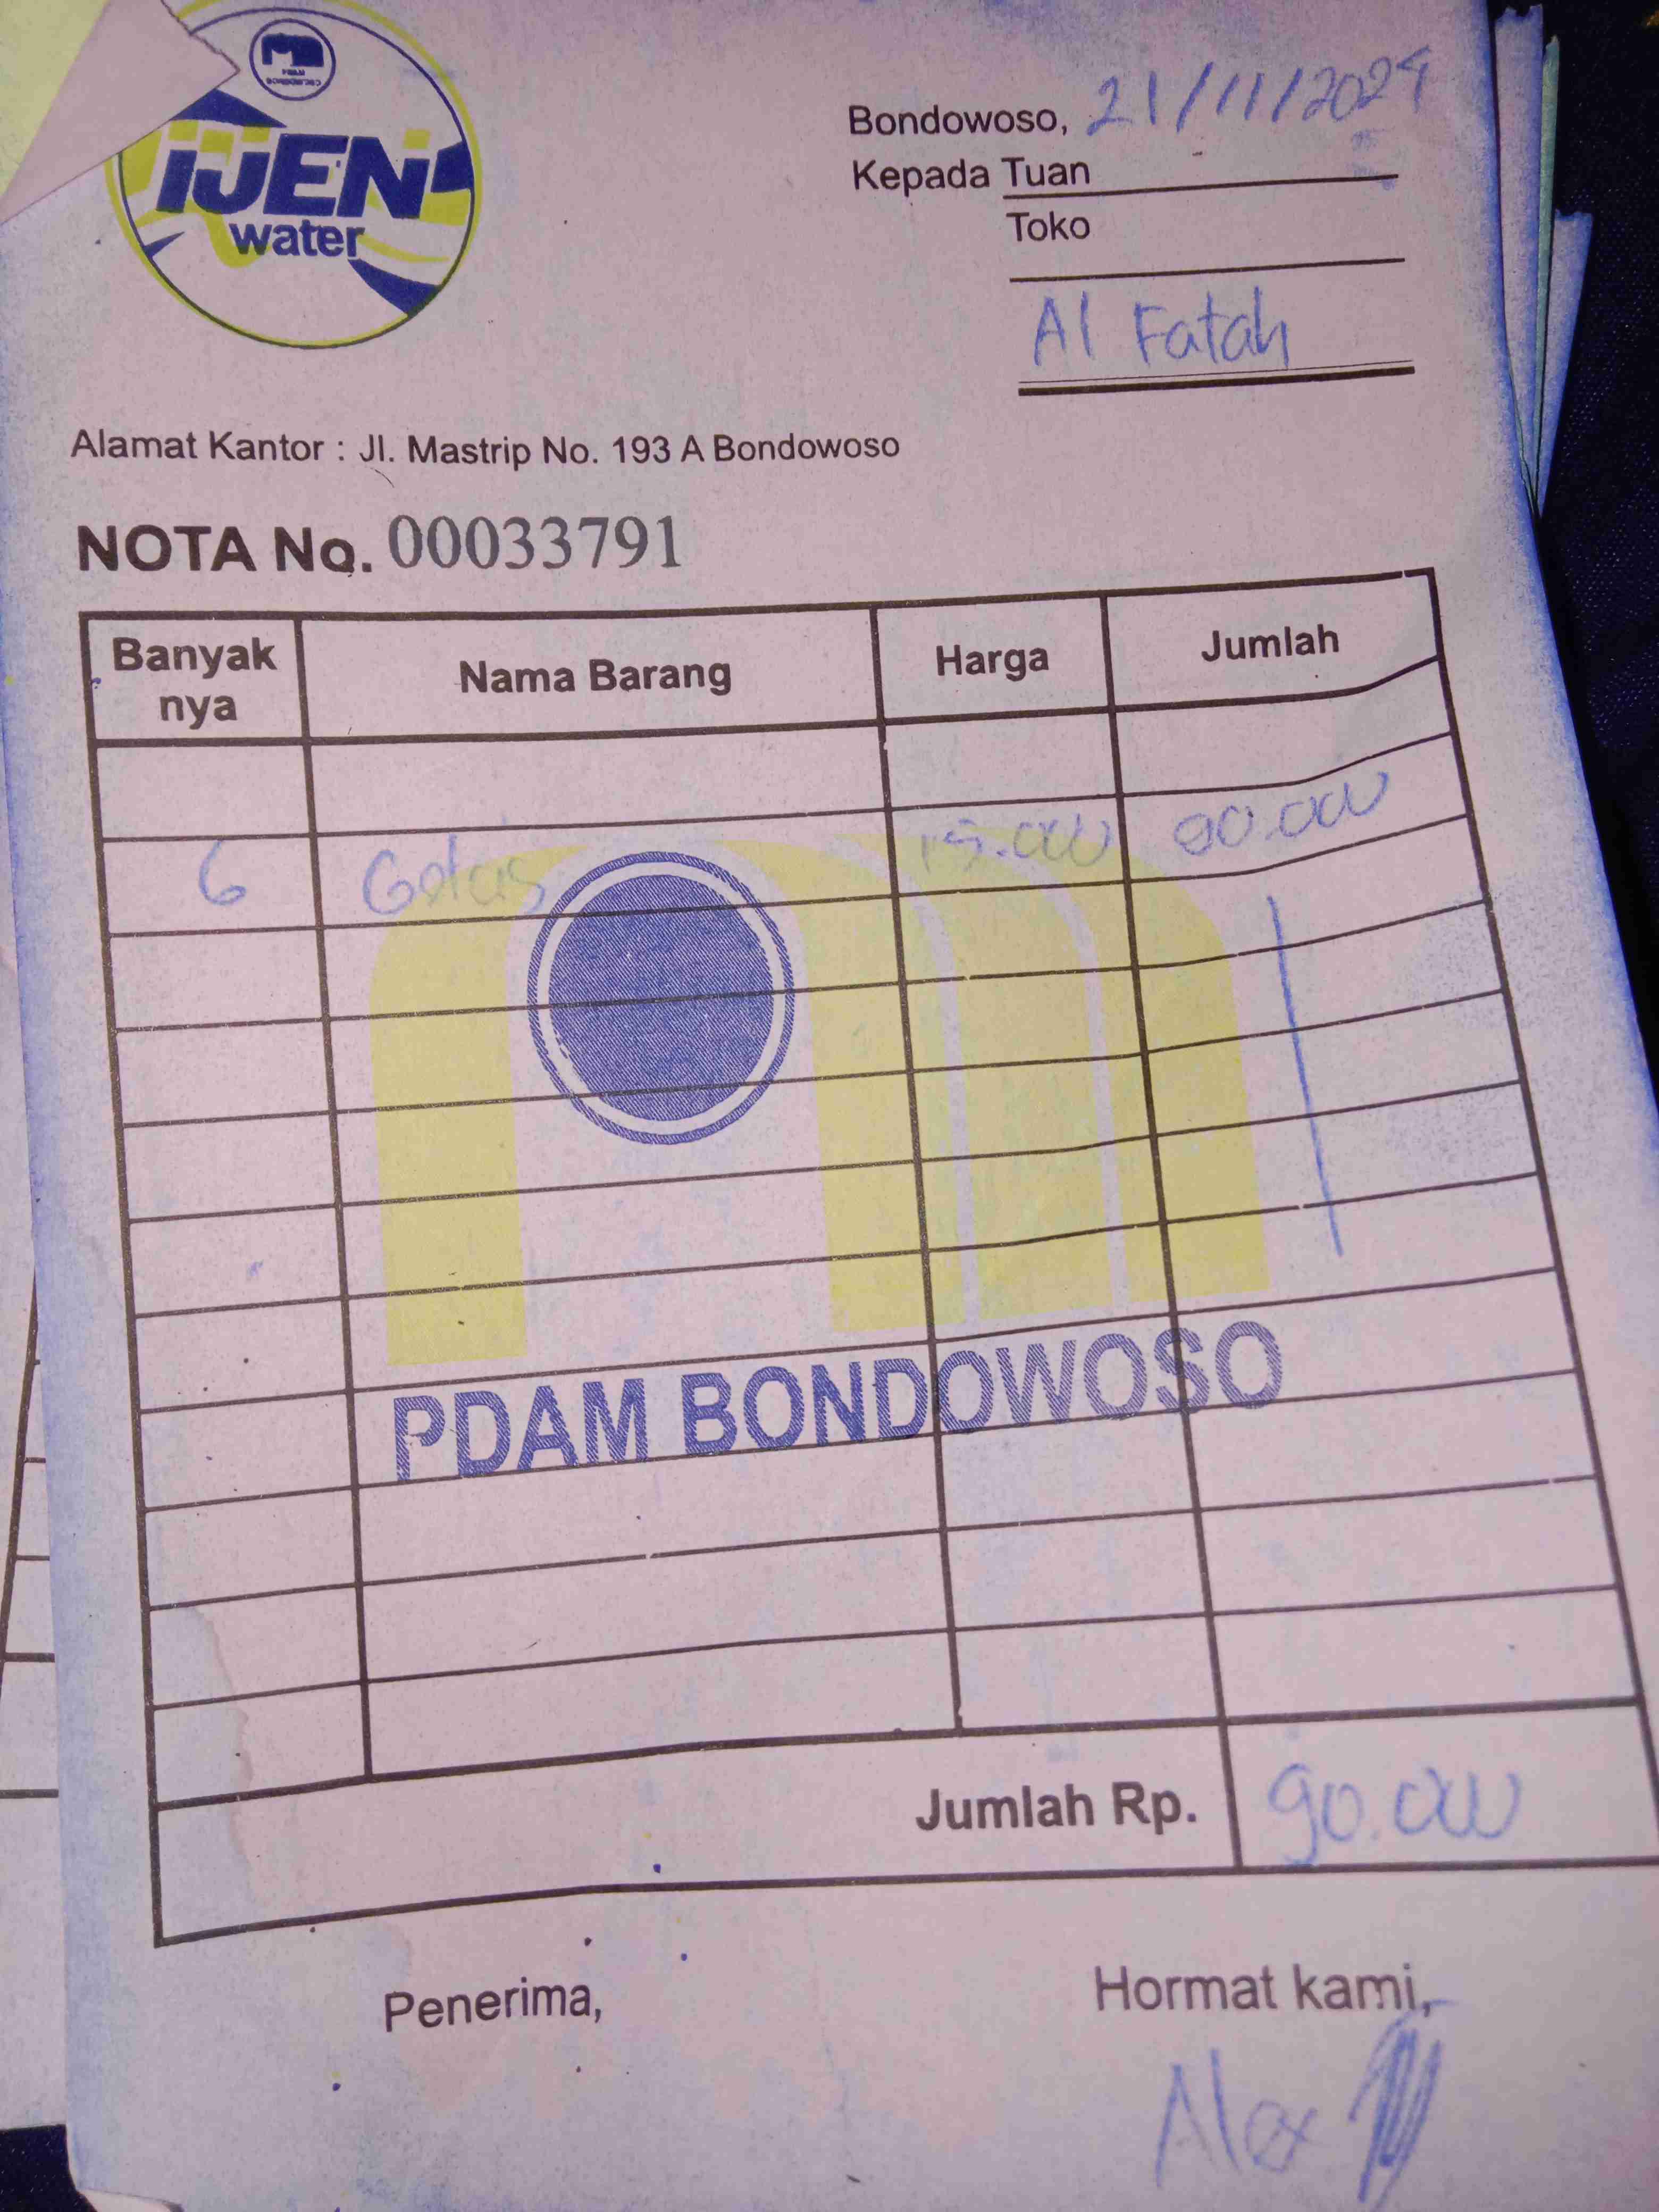 PDAM
BONDOWOSO
IJEN
water
Bondowoso, 21/11/2024
Kepada Tuan
Toko
Al Fatah
Alamat Kantor : Jl. Mastrip No. 193 A Bondowoso
NOTA No. 00033791
Banyak nya Nama Barang Harga Jumlah
6 Gelas 15.000 90.000
PDAM BONDOWOSO
Jumlah Rp. 90.000
Penerima, Hormat kami,
Alex